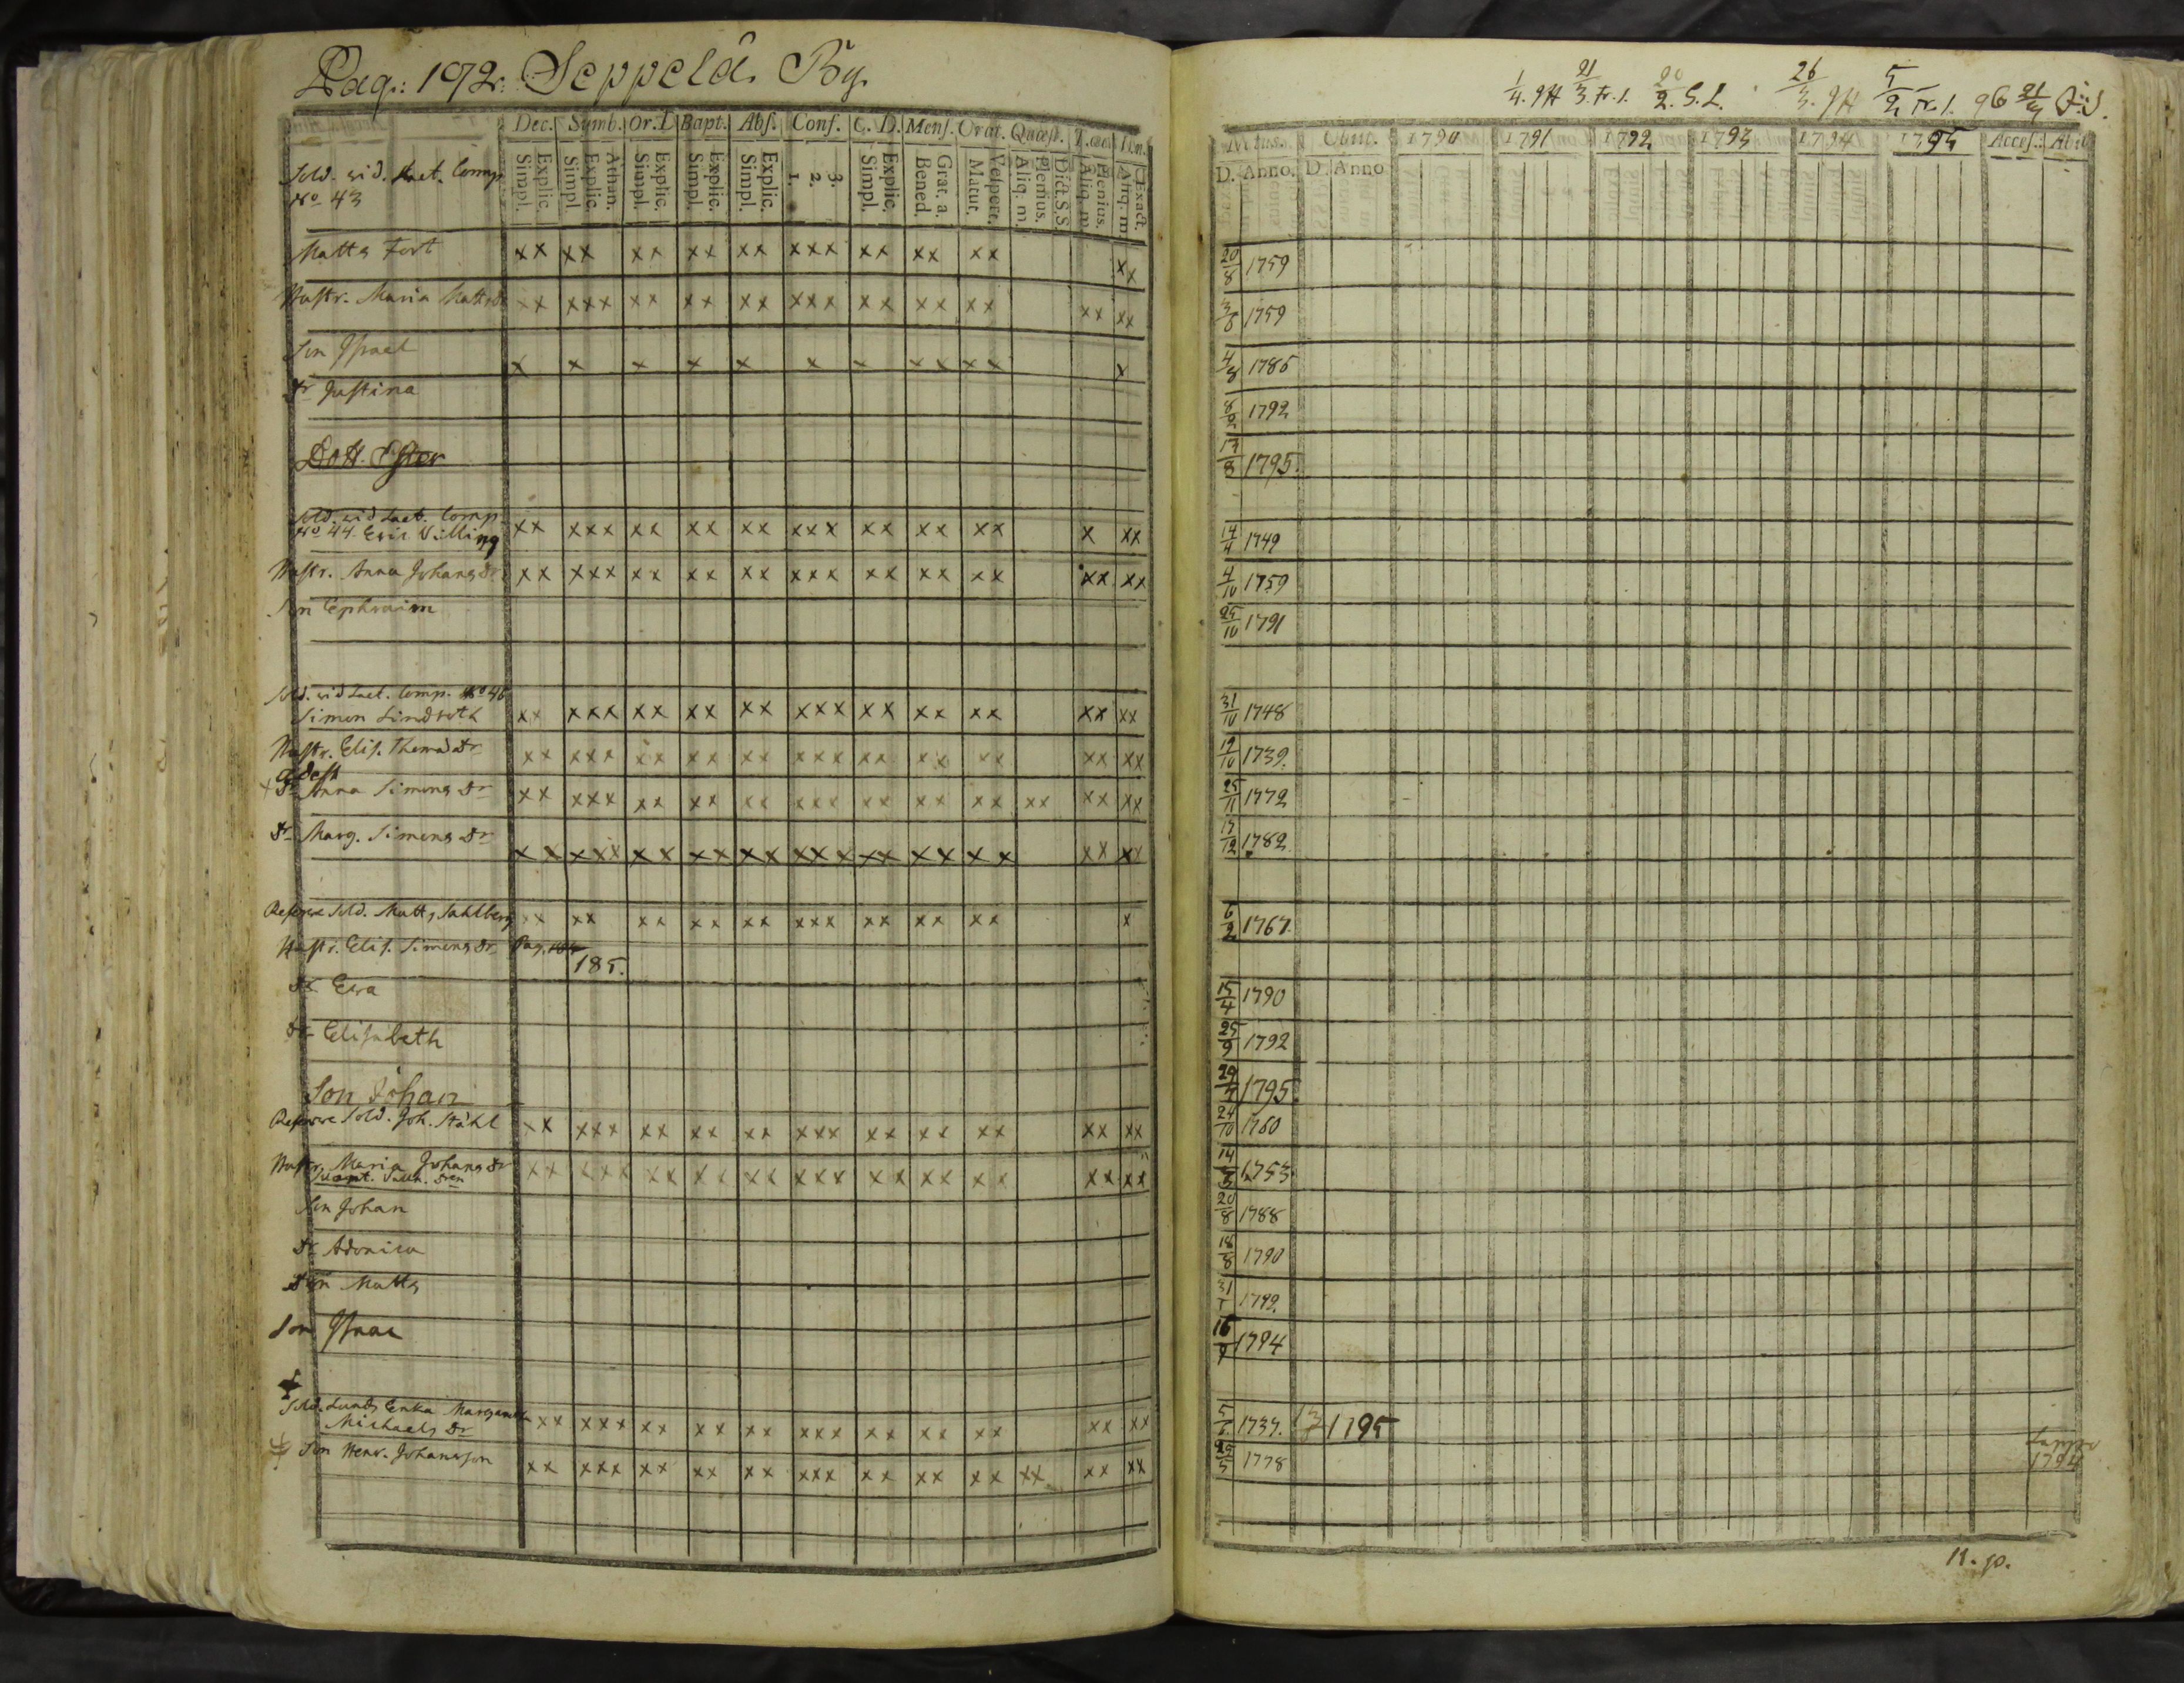 Pag.: 192. Seppelä By.
Dec. Symb. Or. D. Bapt. Abs. Conf. C. D. Mens. Orat. Quæst.
Explic. Simpl. Athan. Explic. Simpl. Explic. Simpl. Explic. Simpl. Explic. Simpl. 3. 2. 1. Explic. Simpl. Grat. a. Bened. Vesper. Matut. Dict. S.S. Plenius. Aliq. m. Plenius. Aliq. m. Exact. Aliq. m.
Sold. wid Comp.
No 43
Matts Fort xx xx xx xx xx xxx xx xx xx xx
Hustr. Maria Matts dr xx xxx xx xx xx xxx xx xx xx xx xx
Son Israel x x x x x x x xx xx x
dr Justina
Dott. Ester
Sold. wid Comp.
No 44 Eric Villing xx xxx xx xx xx xxx xx xx xx x xx
Hustr. Anna Johans dr xx xxx xx xx xx xxx xx xx xx xx xx
Son Ephraim
Sold. wid Comp. No 46
Simon Lindroth xx xxx xx xx xx xxx xx xx xx xx xx
Hustr. Elis. Thomas dr xx xxx xx xx xx xxx xx xx xx xx xx
dr Anna Simons dr xx xxx xx xx xx xxx xx xx xx xx xx xx
dr Marg. Simons dr xx xxx xx xx xx xxx xx xx xx xx xx
Reserve Sold. Matts Sahlberg xx xx xx xx xx xxx xx xx xx x
Hustr. Elis. Simons dr Pag.
185.
dr Ewa
dr Elisabeth
Son Johan
Reserve Sold. Joh. Ståhl xx xxx xx xx xx xxx xx xx xx xx xx
Hustr. Maria Johans dr xx xxx xx xx xx xxx xx xx xx xx xx
Son Johan
dr
Son Matts
Son Isaac
Sold. Lunds Enka Margareta
Michaels dr xx xxx xx xx xx xxx xx xx xx xx xx
Son Henr. Johansson xx xxx xx xx xx xxx xx xx xx xx xx xx
1/4. 21/3. Fr. 1. 20/2. S. L. 26/3. 5/2 Fr. 1. 96 21/4
Natus. Obiit. 1790 1791 1792 1793 1794 1795 Access.
D. Anno. D. Anno
20/8 1759
3/8 1759
4/8 1785
8/9 1792
17/8 1795.
14/4 1749
4/10 1759
25/10 1791
31/10 1748
19/10 1739.
25/11 1772
17/12 1782.
6/2 1767.
15/4 1790
25/9 1792
29/4 1795
24/10 1760
14/3 1753.
20/8 1788
18/8 1790
31/1 1792.
16/9 1794
5/6 1737. 1795
1778 Lappo
1794
11. p.